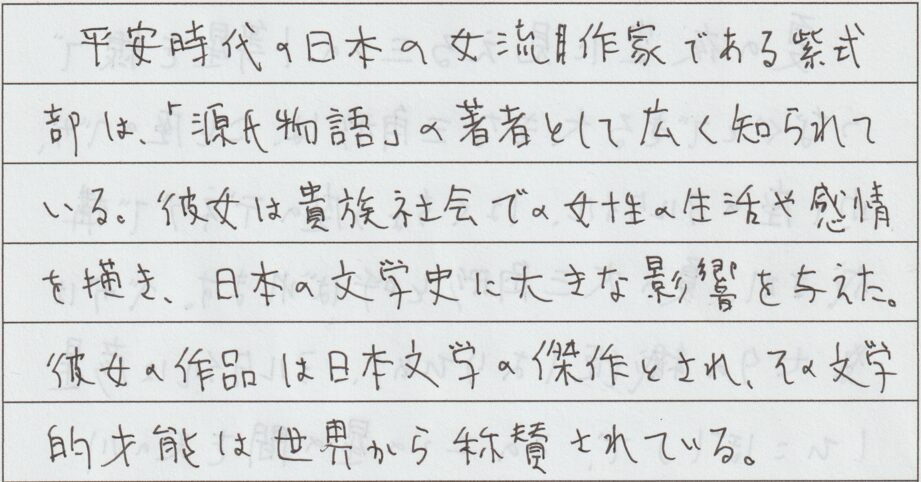 平安時代の日本の女流作家である紫式
部は、「源氏物語」の著者として広く知られて
いる。彼女は貴族社会での女性の生活や感情
を描き、日本の文学史に大きな影響を与えた。
彼女の作品は日本文学の傑作とされ、その文学
的才能は世界から称賛されている。